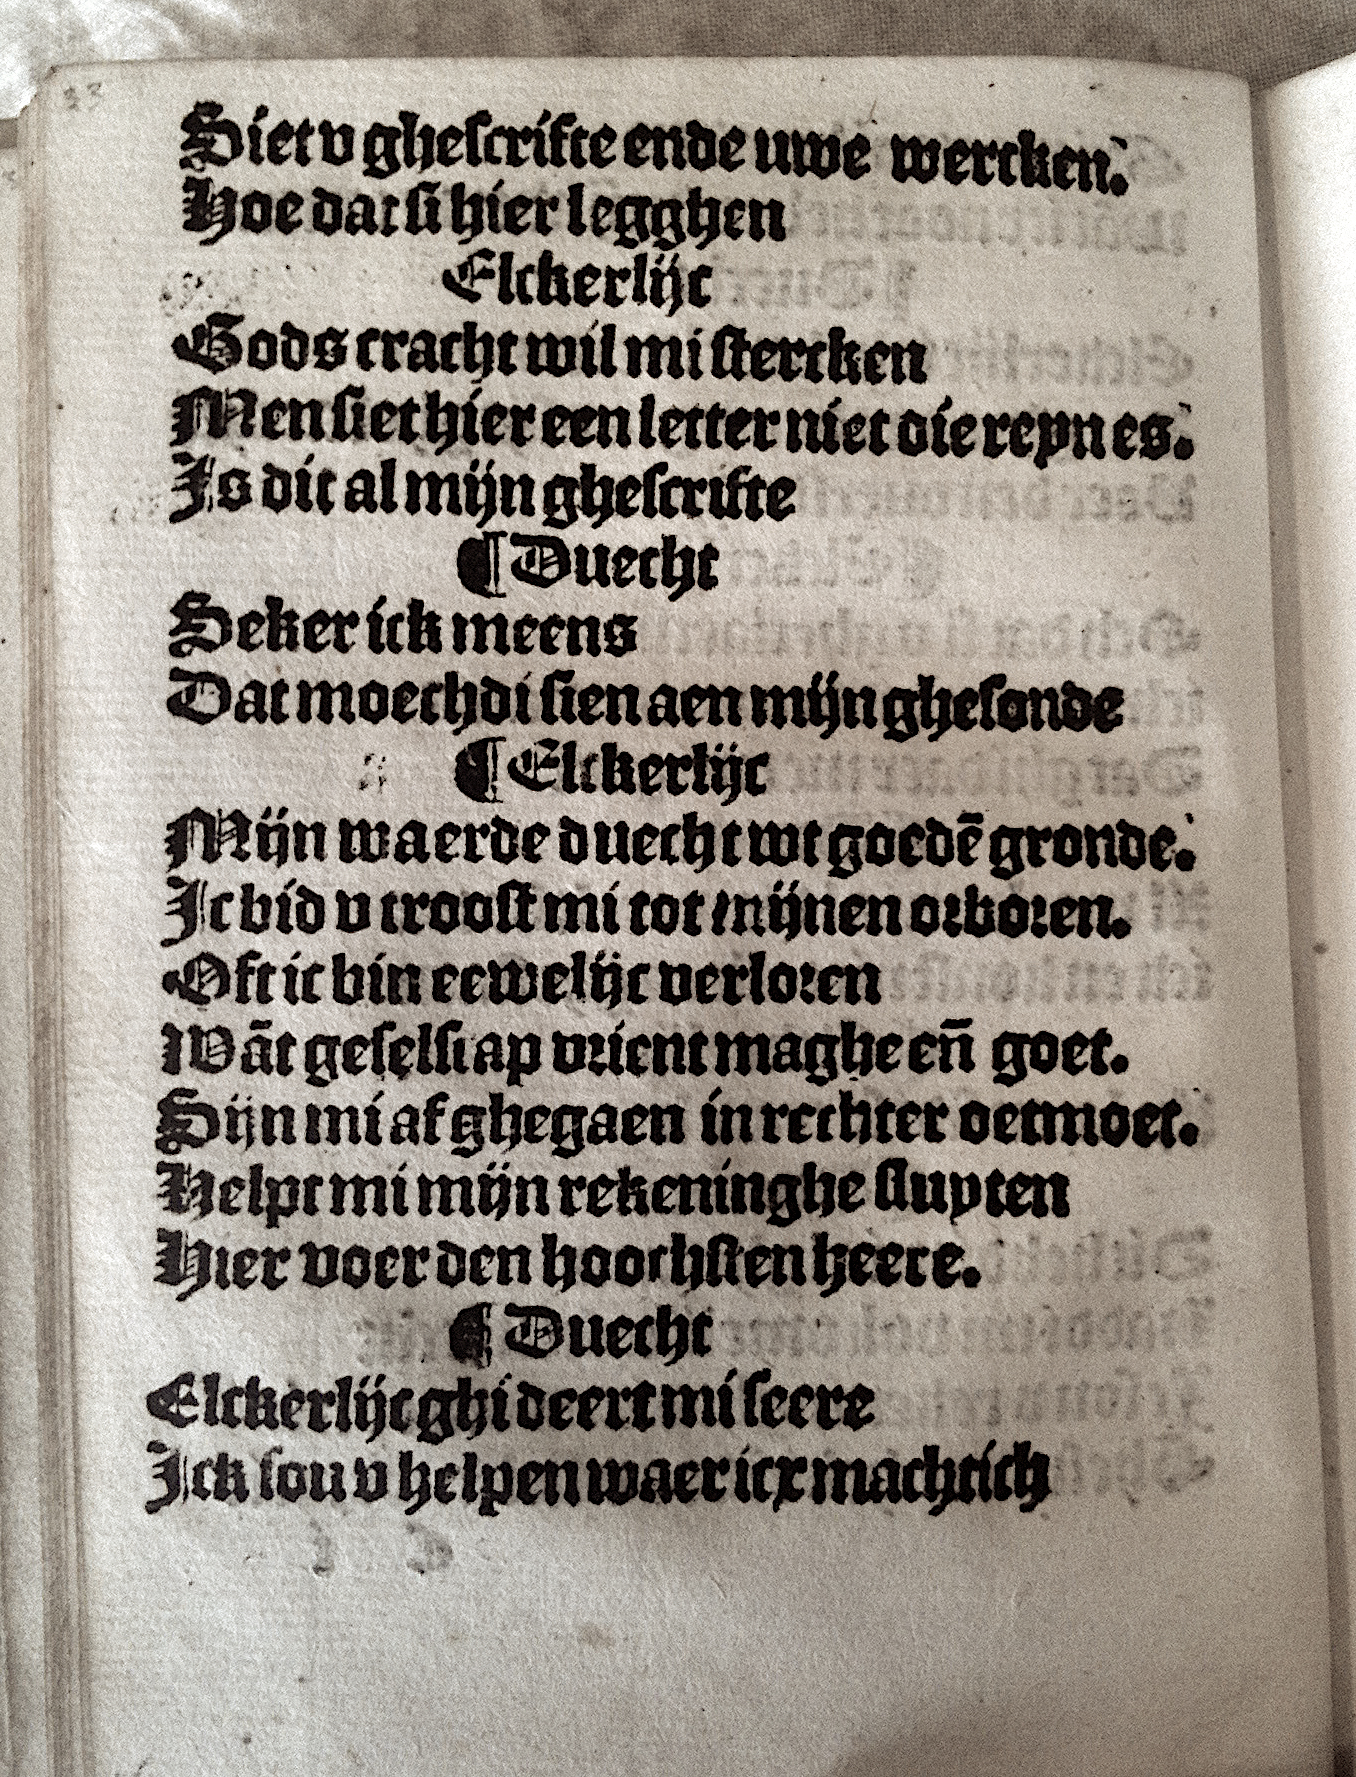 Siet v ghescrifte ende uwe wercken.
Hoe dat si hier legghen
Elckerlijc
Gods cracht wil mi stercken
Men siet hier een letter niet die reyn es.
Is dit al mijn ghescrifte
¶ Duecht
Seker ick meens
Dat moechdi sien aen mijn ghesonde
¶ Elckerlijc
Mijn waerde duecht wt goedē gronde.
Ic bid v troost mi tot mijnen orboren.
Oft ic bin eewelijc verloren
Wāt geselscap vrient maghe eñ goet.
Sijn mi af ghegaen in rechter oetmoet.
Helpt mi mijn rekeninghe sluyten
Hier voer den hoochsten heere.
¶ Duecht
Elckerlijc ghi deert mi seere
Ick sou v helpen waer icx machtich